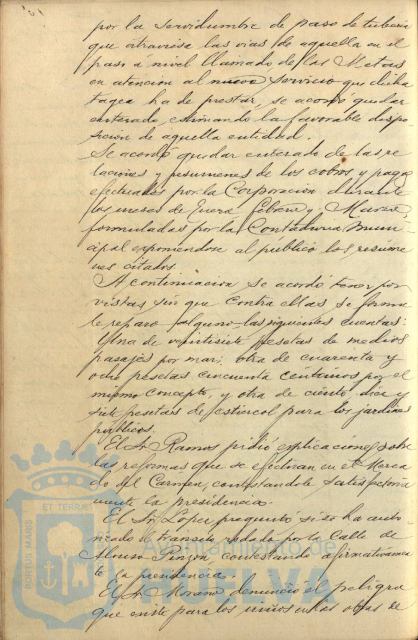 por la servidumbre de paso de tuberia
que atraviesa las vias de aquella en el
paso a nivel llamado de las Metas
en atencion al nuevo servicio que dicha
ha de prestar, se acordó quedar
enterado, estimando la favorable dispo
sicion de aquella entidad.
Se acordó quedar enterado de las re
laciones y resumenes de los cobros y pagos
efectuados por la Corporacion durante
los meses de Enero, Febrero y Marzo
formuladas por la Contaduria Muni
cipal exponiendose al publico los resume
nes citados.
A continuacion se acordó tener por
vistas sin que contra ellas se formu
le reparo alguno las siguientes cuentas:
Una de veintisiete pesetas de medios
pasajes por mar; otra de cuarenta y
ocho pesetas cincuenta céntimos por el
mismo concepto, y otra de ciento diez y
siete pesetas de estiercol para los jardines
publicos.
El Sr. Ramos pidió explicaciones sobre
las reformas que se efectuan en el Merca
do del Carmen, contestandole satisfactoria
mente la presidencia.
El Sr. Lopez preguntó si se ha auto
rizado el transito rodado por la Calle de
Alonso Pinzon contestando afirmativamen
te la presidencia.
El Sr. Moreno denunció el peligro
que existe para los niños en las obras de
PORTUS MARIS ET TERRE CUSTODIA
Ayuntamiento de
HUELVA